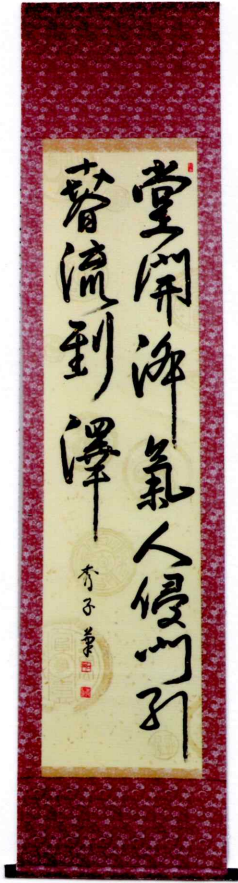 堂開淑氣人侵門引
春流到澤
秀子筆